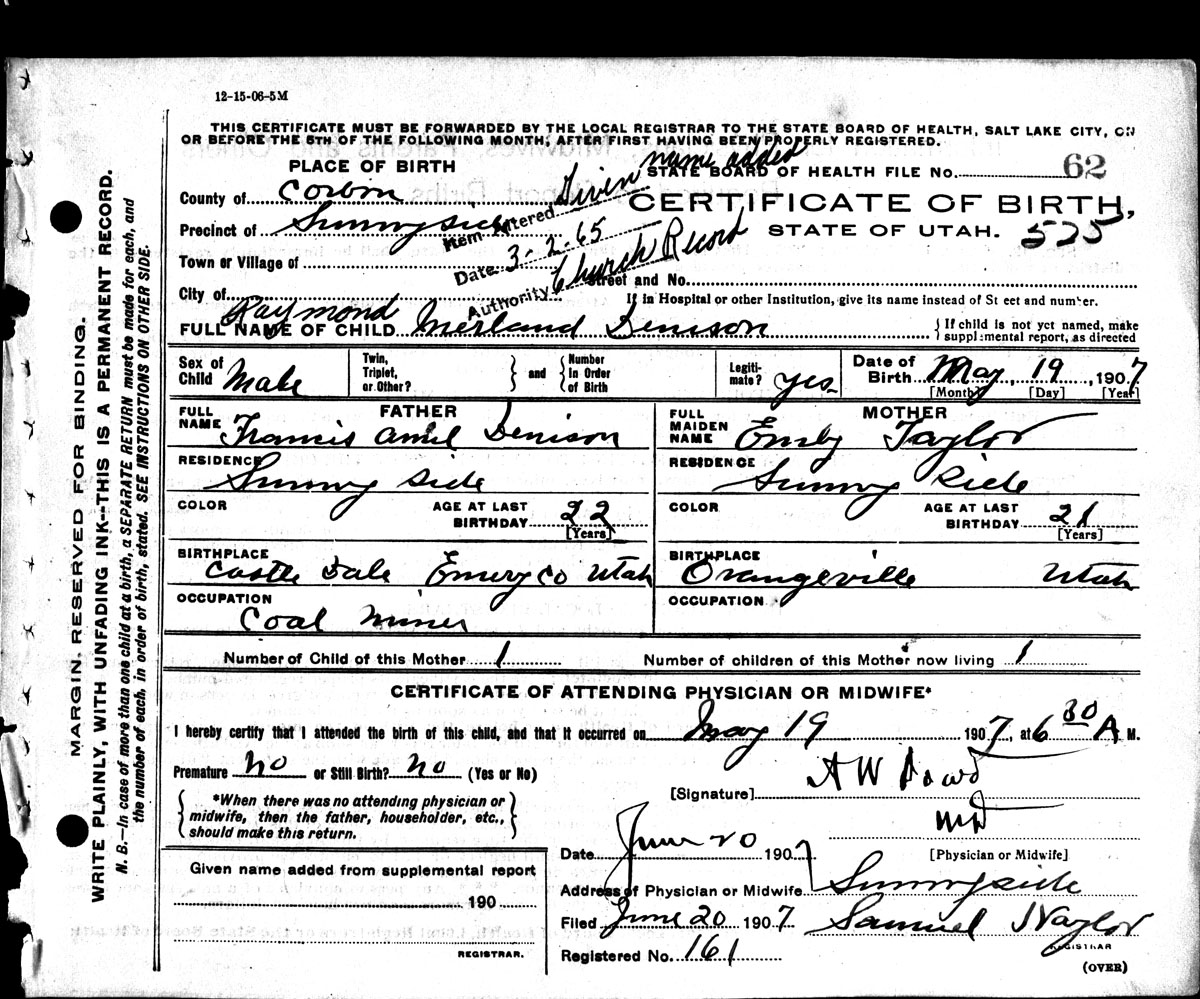 12-15-06-5M
THIS CERTIFICATE MUST BE FORWARDED BY THE LOCAL REGISTRAR TO THE STATE BOARD OF HEALTH, SALT LAKE CITY, ON
OR BEFORE THE 5TH OF THE FOLLOWING MONTH, AFTER FIRST HAVING BEEN PROPERLY REGISTERED.
PLACE OF BIRTH
STATE BOARD OF HEALTH FILE No. 62
County of Corbin
Given name added
CERTIFICATE OF BIRTH,
Precinct of Sunnyside
Item Entered
STATE OF UTAH. 525
Town or Village of
Date 3-2-65
Authority Church Record
Street and No.
City of
If in Hospital or other Institution, give its name instead of St eet and number.
Raymond
FULL NAME OF CHILD Merland Denison
{ If child is not yet named, make
supplemental report, as directed
Sex of Child Male
Twin, Triplet, or Other?
} and {
Number In Order of Birth
Legiti- mate? yes
Date of Birth May, 19, 1907
[Month] [Day] [Year]
FATHER
FULL NAME Francis Amil Denison
RESIDENCE Sunny side
COLOR
AGE AT LAST BIRTHDAY 22
[Years]
BIRTHPLACE
Castle Dale Emery Co Utah
OCCUPATION
Coal miner
MOTHER
FULL MAIDEN NAME Emily Taylor
RESIDENCE Sunny Side
COLOR
AGE AT LAST BIRTHDAY 21
[Years]
BIRTHPLACE
Orangeville Utah
OCCUPATION
Number of Child of this Mother 1
Number of children of this Mother now living 1
CERTIFICATE OF ATTENDING PHYSICIAN OR MIDWIFE*
I hereby certify that I attended the birth of this child, and that it occurred on May 19 1907, at 6 30 A M.
Premature No or Still Birth? No (Yes or No)
{ *When there was no attending physician or
midwife, then the father, householder, etc.,
should make this return. }
[Signature] A W
MD
[Physician or Midwife]
Date June 20 1907
Address of Physician or Midwife Sunnyside
Filed June 20 1907 Samuel Naylor
REGISTRAR
Registered No. 161
(OVER)
Given name added from supplemental report
190
REGISTRAR.
MARGIN. RESERVED FOR BINDING.
WRITE PLAINLY, WITH UNFADING INK--THIS IS A PERMANENT RECORD.
N. B.—In case of more than one child at a birth, a SEPARATE RETURN must be made for each, and
the number of each, in order of birth, stated. SEE INSTRUCTIONS ON OTHER SIDE.